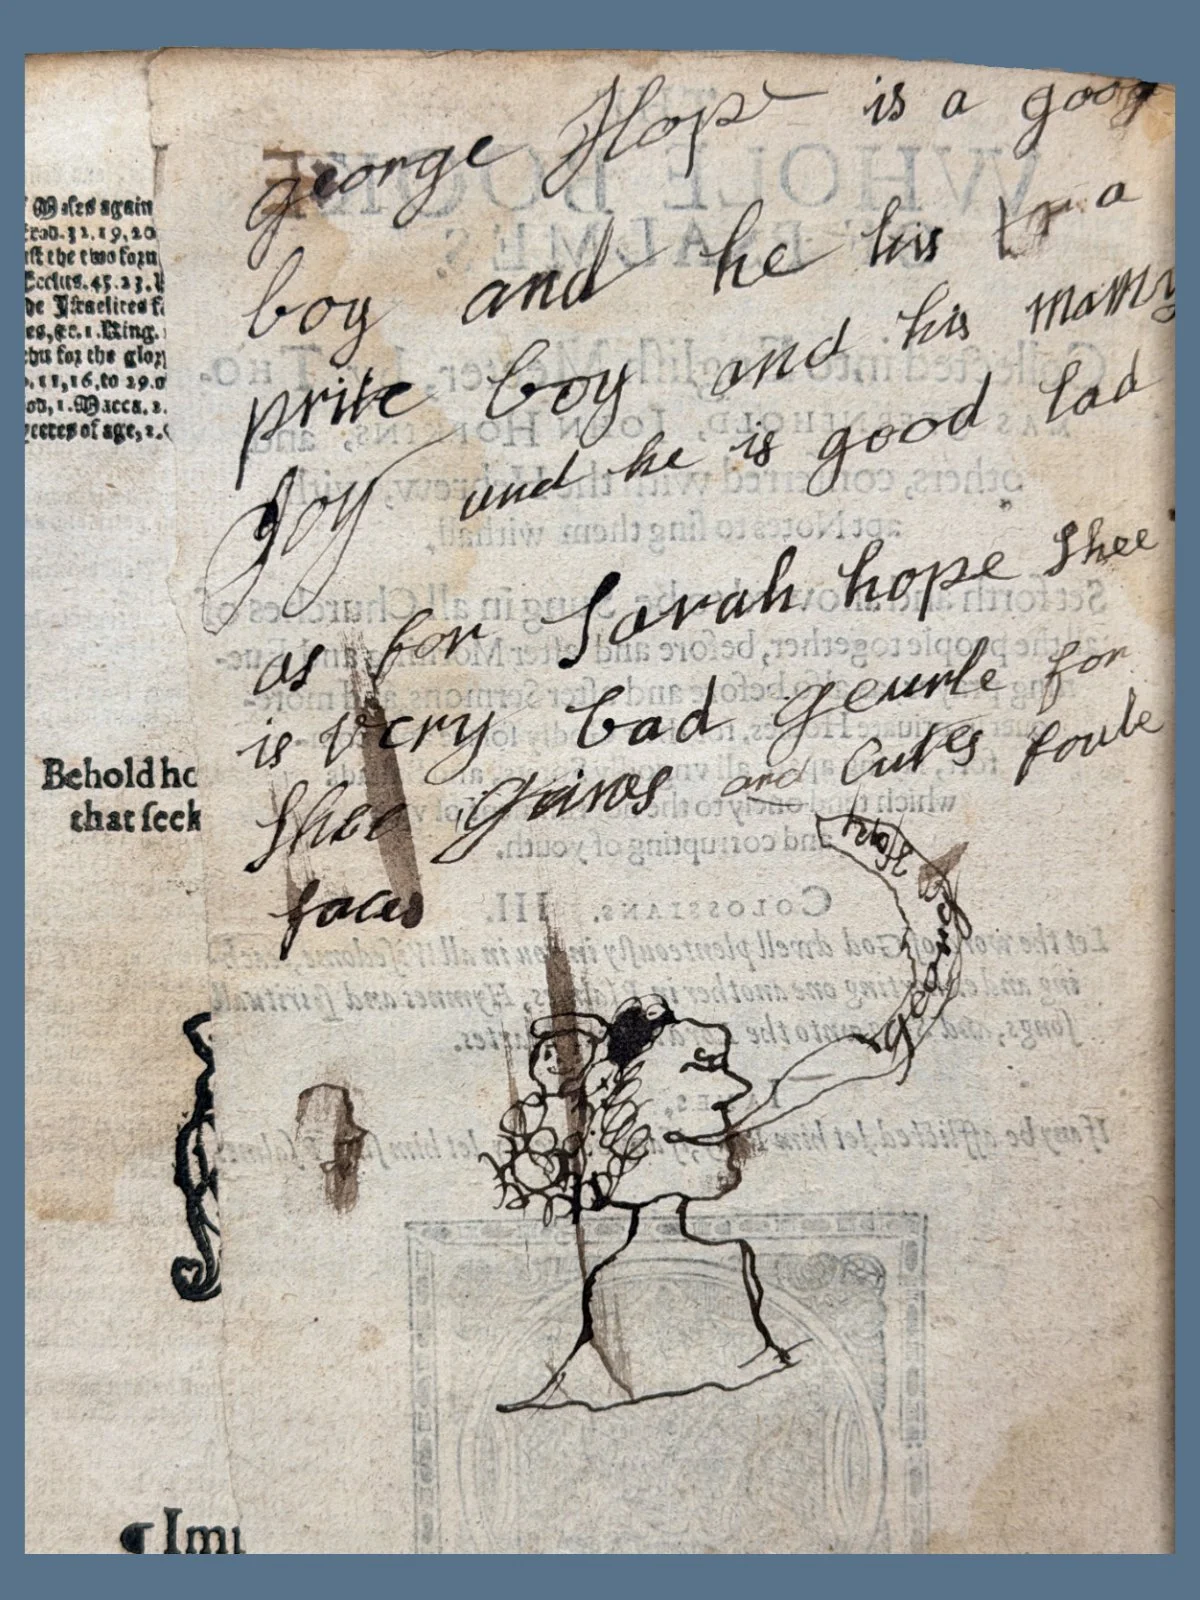 george Hope is a good
boy and he his a
prite boy and his mamy
Joy and he is good lad
as for Sarah hope Shee
is very bad geurle for
Shee and Cutes foule
faces
george Hope
Moses again
32.19,20
the two forn
Ecclus.45.23.
Israelites
1.King.
for the glory
11,16,to 29.
1.Macca.2.
yeeres of age,
Behold ho
that seek
Imp
WHOLE BOOKE
OF PSALMES
Collected into English Meeter, by THO-
MAS STERNEHOLD, IOHN HOPKINS, and
others, conferred with the Hebrew, with
apt Notes to sing them withall,
Set forth and allowed to be sung in all Churches of
the people together, before and after Morning and Eue-
ning before and after Sermons, and more-
ouer in priuate Houses,
which tend onely to the
and corrupting of youth.
COLOSSIANS. III.
Let the word of God dwell plenteously in you in all Wisedome, teach-
ing and exhorting one another in Psalmes, Hymnes and spirituall
songs, and vnto the Lord
IAMES,
If any be afflicted let him let him sing Psalmes.